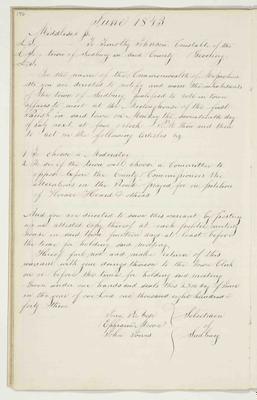 June 1843
Middlesex ss.
To Timothy Johnson Constable of the
town of Sudbury in said County Greeting
In the name of the Commonwealth of Massachusetts
you are directed to notify and warn the inhabitants
of the town of Sudbury qualified to vote in town
affairs to meet at the Meetinghouse of the first
Parish in said town on Monday the seventeenth day
of July next at four o'clock P.M. then and there
to act on the following articles
1 To choose a Moderator
2 To see if the town will choose a Committee to
appear before the County Commissioners
alterations in the Road prayed for in petition
of Horace Heard & others
And you are directed to serve this warrant by posting
up an attested copy thereof at each public meeting
house in said town fourteen days at least before
the time for holding said meeting
Hereof fail not and make return of this
warrant with your doings thereon to the Town Clerk
on or before the time for holding said meeting
Given under our hands and seals this day of June
in the year of our Lord one thousand eight hundred
forty three
Selectmen
Ephraim Moore of
John Sudbury